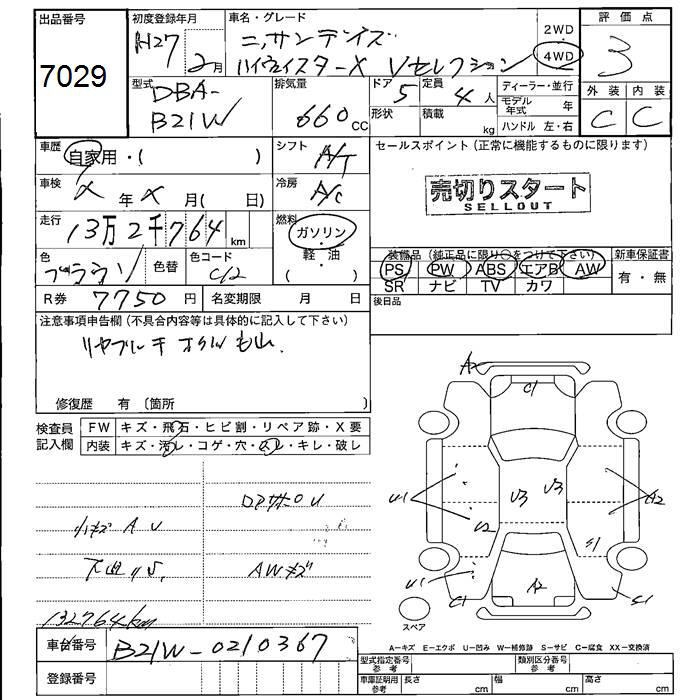 出品番号
7029
初度登録年月
H27 2月
車名・グレード
ニッサンデイズ
ハイウェイスターX Vセレクション
2WD
4WD
評価点
3
外装 内装
C C
型式
DBA-
B21W
排気量
660 cc
ドア 5
形状
定員 4人
積載 kg
ディーラー・並行
モデル年式 年
ハンドル 左・右
車歴 自家用・( )
シフト A/T
セールスポイント (正常に機能するものに限ります)
売切りスタート
SELLOUT
車検 年 月( 日)
冷房 A/C
走行 13万2千764km
燃料 ガソリン
軽・油
( )
色 ブラウン 色替
色コード C/2
装備品(純正品に限り○をつけて下さい)
新車保証書
PS PW ABS エアB AW
SR ナビ TV カワ
有・無
R券 7750円 名変期限 月 日
後日品
注意事項申告欄(不具合内容等は具体的に記入して下さい)
修復歴 有 〔箇所 〕
検査員記入欄
FW キズ・飛石・ヒビ割・リペア跡・X要
内装 キズ・汚レ・コゲ・穴・スレ・キレ・破レ
小キズ A U
AWキズ
132764km
A2
C1
U1
U3
U3
A2
U2
S1
U1
C1
A2
S1
スペア
A-キズ E-エクボ U-凹み W-補修跡 S-サビ C-腐食 XX-交換済
車台番号 B21W-0210367
登録番号
型式指定番号 参考
類別区分番号 参考
車庫証明用 参考 長さ cm 幅 cm 高さ cm